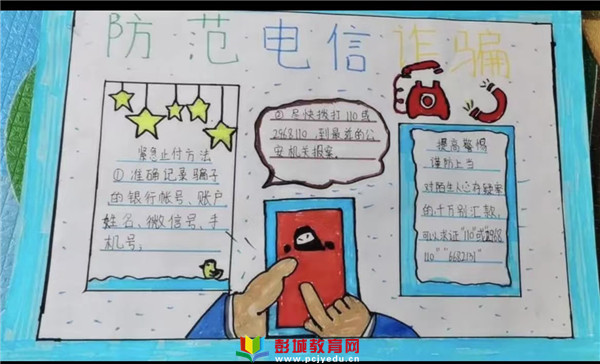 防范电信诈骗
紧急止付方法
①准确记录骗子
的银行帐号、账户
姓名、微信号、手
机号。
②尽快拨打110或
2968110,到最近的公
安机关报案。
提高警惕
谨防上当
对陌生人心存疑窦
的千万别汇款,
可以求证"110"或"2968
110""6682131"
彭城教育网
www.pcjyedu.cn